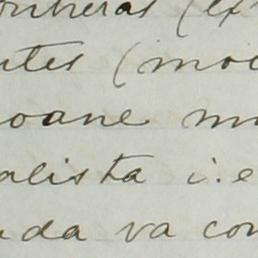 ontreras (ex
ntes (mod
oane m
alista i.e
ada va con